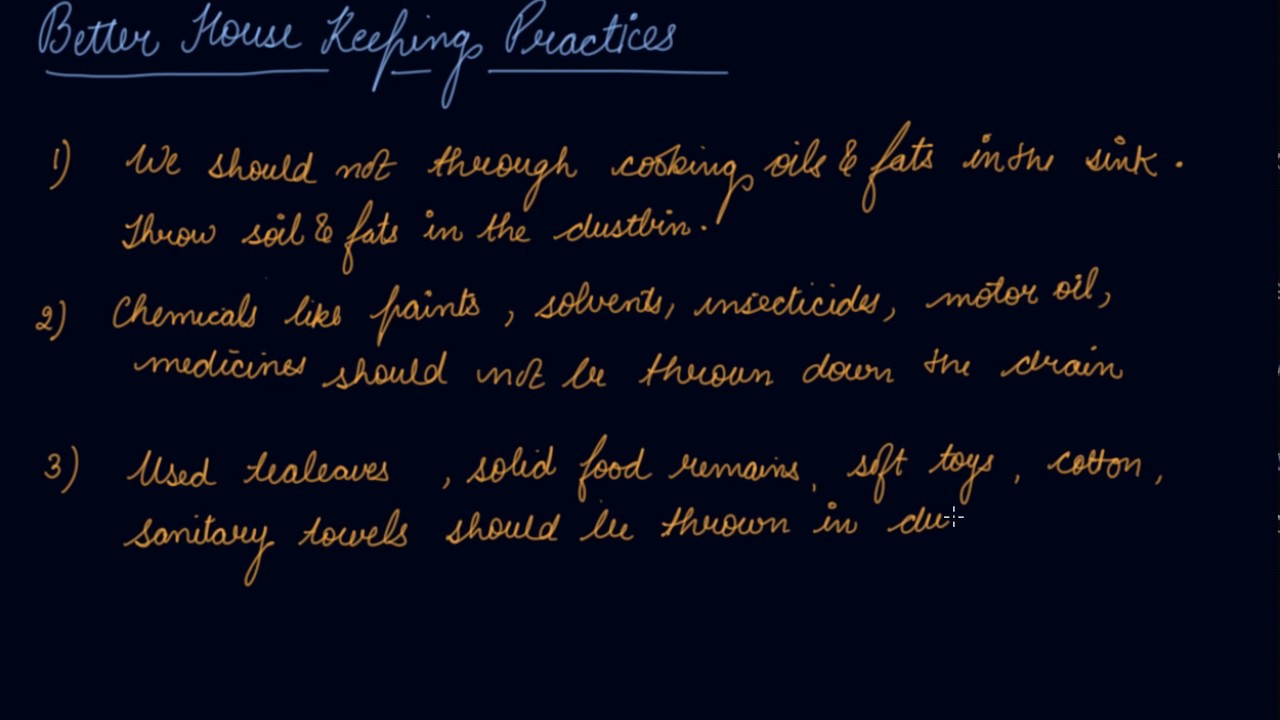 Better House Keeping Practices
1) We should not through cooking oils & fats in the sink.
Throw soil & fats in the dustbin.
2) Chemicals like paints, solvents, insecticides, motor oil,
medicines should not be thrown down the drain
3) Used tealeaves, solid food remains, soft toys, cotton,
sanitary towels should be thrown in du